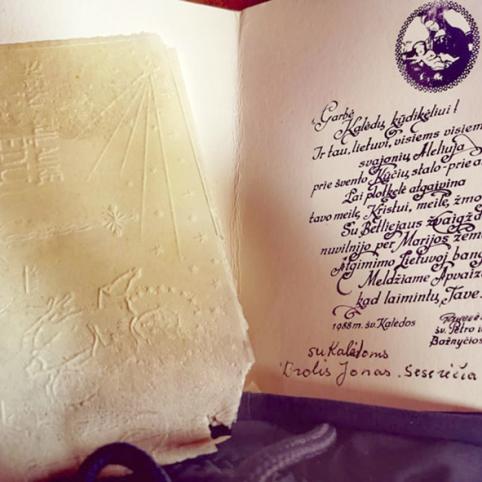 Garbė
Kalėdų kūdikėliui!
Ir tau, lietuvi, visiems visiem
svajonių Aleliuja
prie švento Kūčių stalo-prie a
Lai plotkelė atgaivina
tavo meilę Kristui, meilę, žmo
Su Betliejaus žvaigžd
nuvilnijo per Marijos žem
Atgimimo Lietuvoj bang
Meldžiame Apvaiz
kad laimintų Tave.
1988 m. šv. Kalėdos
šv. Petro i
Bažnyčios
su Kalėdoms
Brolis Jonas.